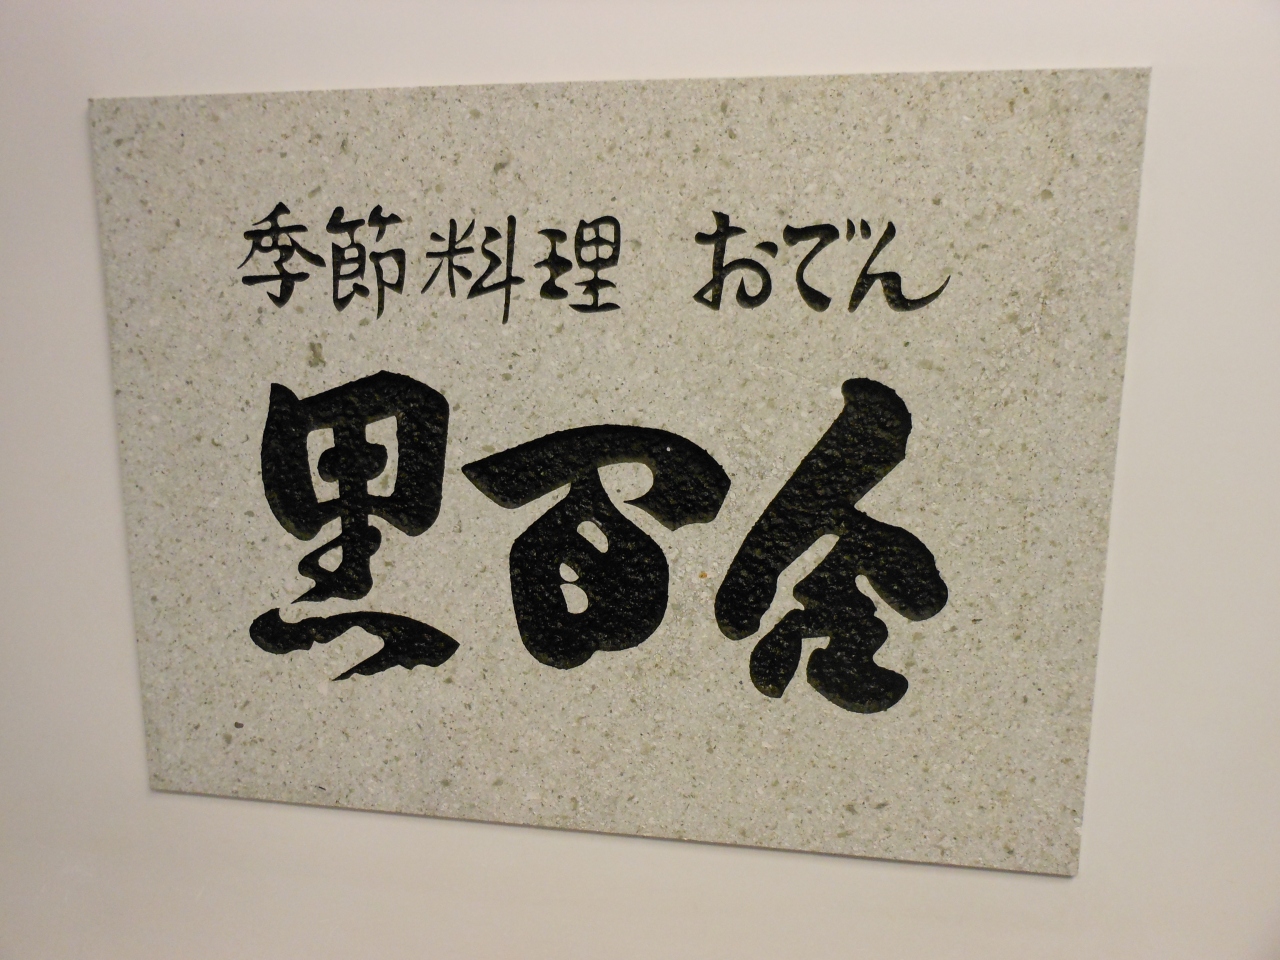 季節料理 おでん
黒百合